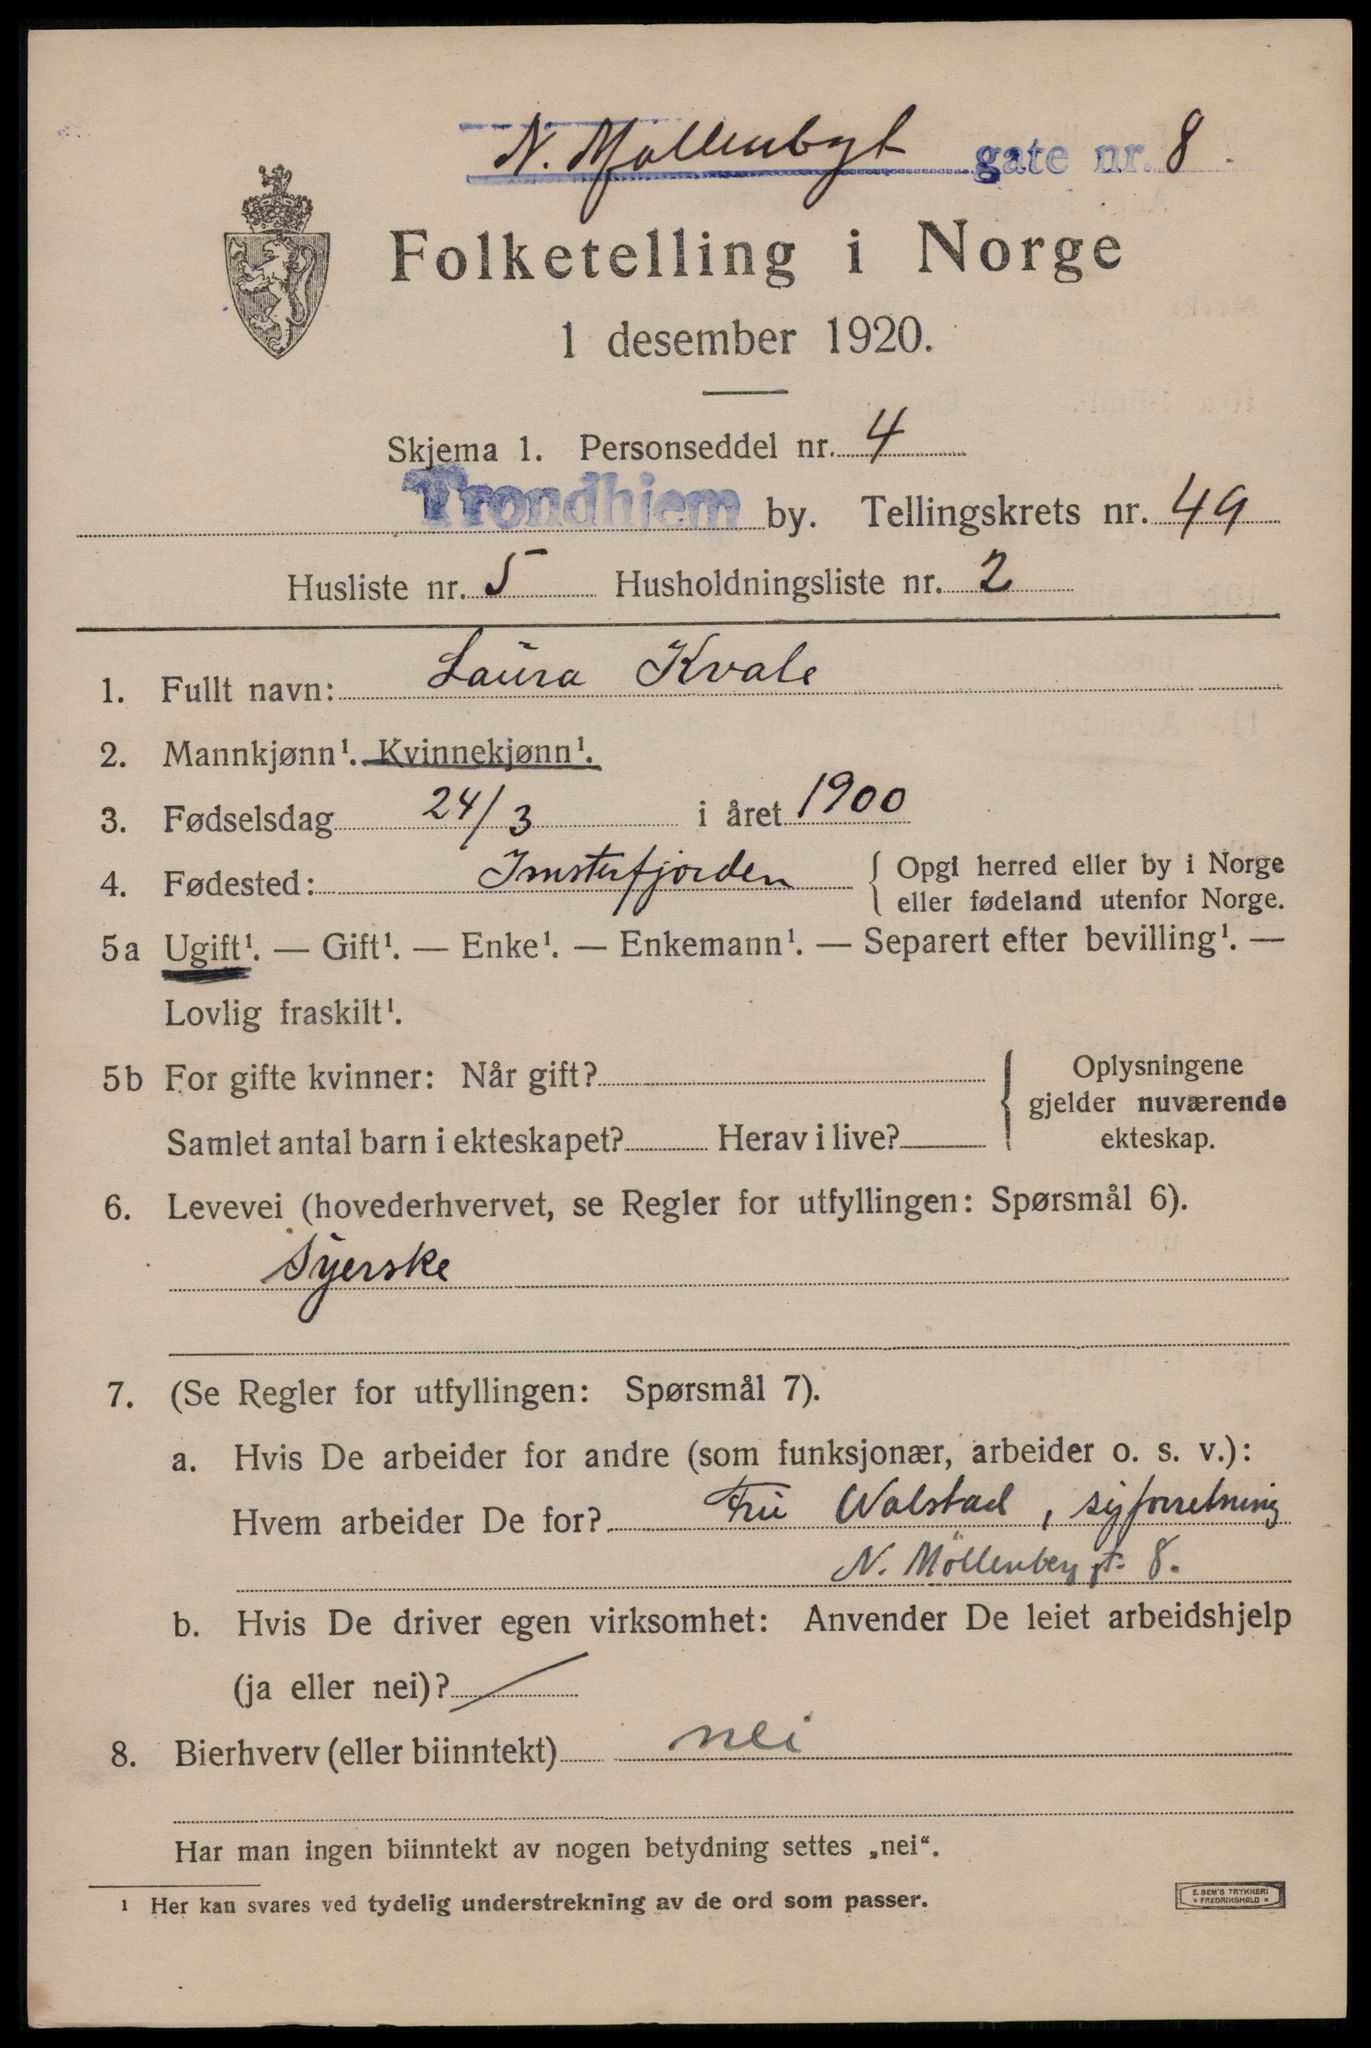 N. Møllenbgt gate nr. 8.
Folketelling i Norge
1 desember 1920.
Skjema 1. Personseddel nr. 4
Trondhjem by. Tellingskrets nr. 49
Husliste nr. 5 Husholdningsliste nr. 2
1. Fullt navn: Laura Kvale
2. Mannkjønn¹. Kvinnekjønn¹.
3. Fødselsdag 24/3 i året 1900
4. Fødested: Imsterfjorden { Opgi herred eller by i Norge
eller fødeland utenfor Norge.
5a Ugift¹. — Gift¹. — Enke¹. — Enkemann¹. — Separert efter bevilling¹. —
Lovlig fraskilt¹.
5b For gifte kvinner: Når gift?
Samlet antal barn i ekteskapet? Herav i live?
Oplysningene
gjelder nuværende
ekteskap.
6. Levevei (hovederhvervet, se Regler for utfyllingen: Spørsmål 6).
Syerske
7. (Se Regler for utfyllingen: Spørsmål 7).
a. Hvis De arbeider for andre (som funksjonær, arbeider o. s. v.):
Hvem arbeider De for? Fru Walstad, syforretning
N. Möllenberg gt. 8.
b. Hvis De driver egen virksomhet: Anvender De leiet arbeidshjelp
(ja eller nei)? /
8. Bierhverv (eller biinntekt) nei
Har man ingen biinntekt av nogen betydning settes „nei“.
¹ Her kan svares ved tydelig understrekning av de ord som passer.
E. SEM'S TRYKKERI
* FREDRIKSHALD *